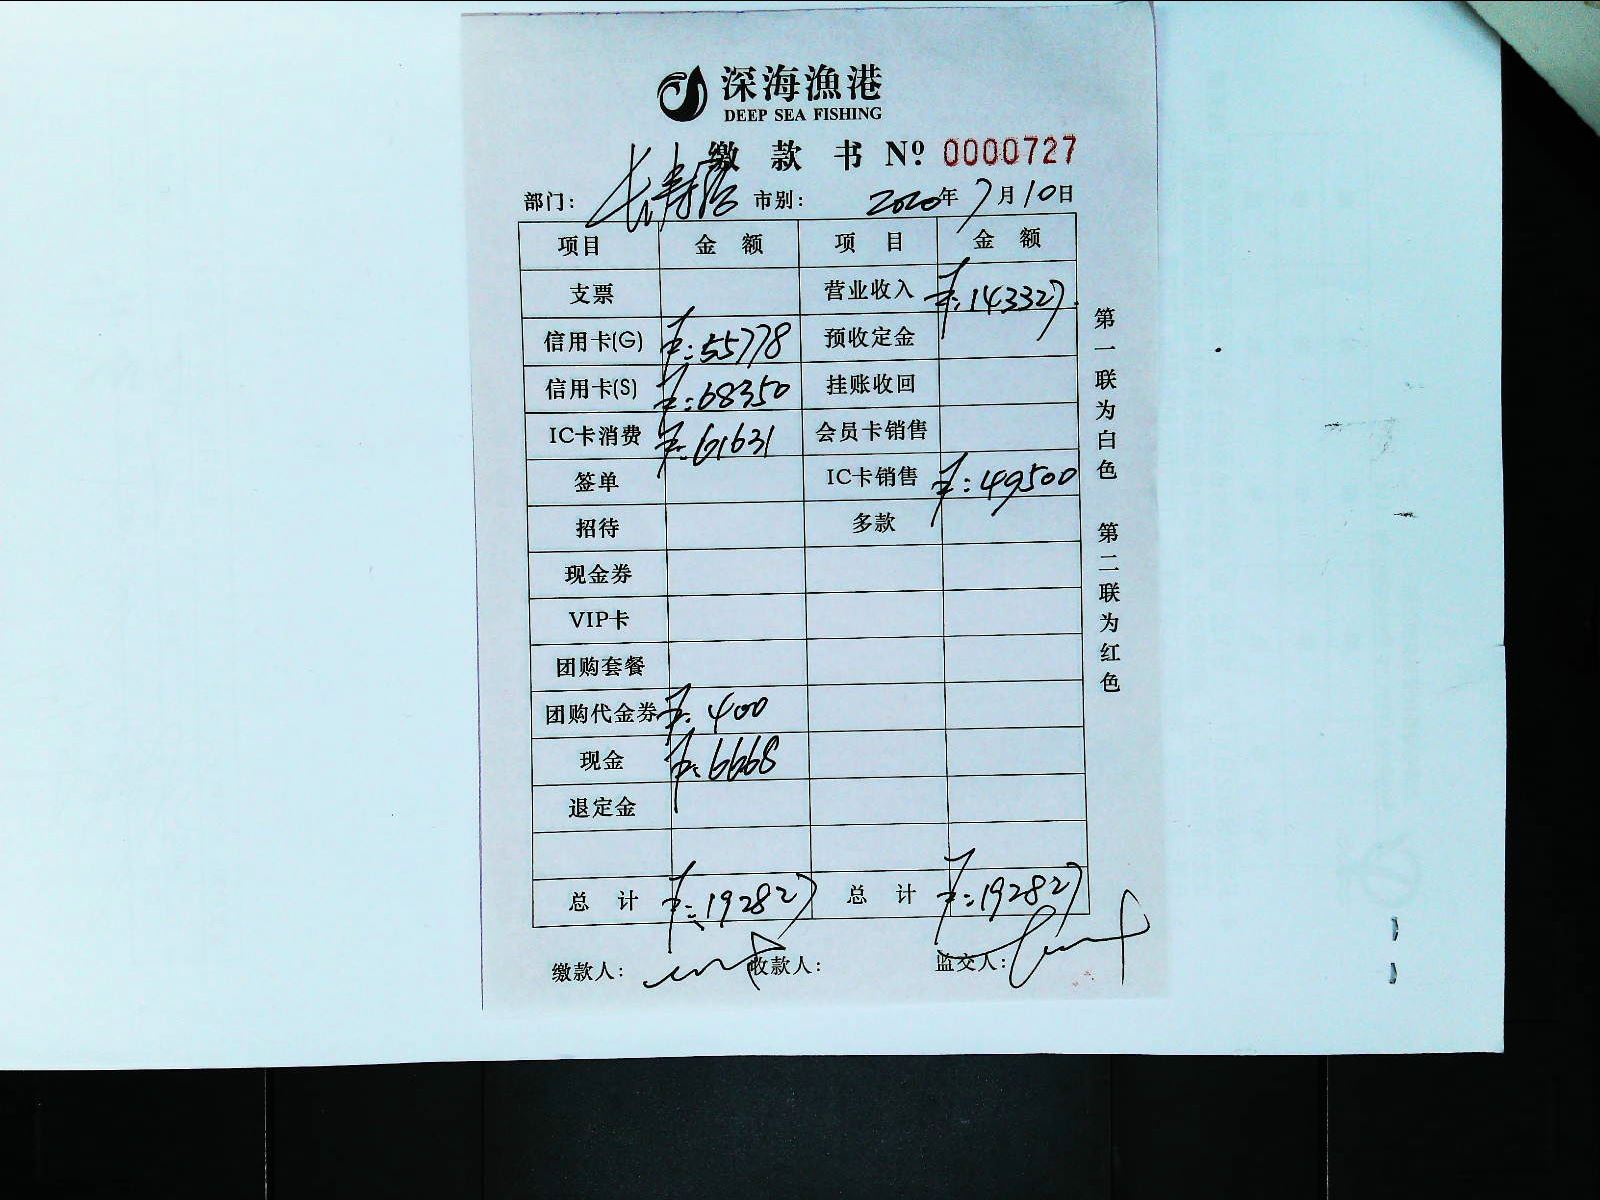 深海漁港
DEEP SEA FISHING
缴 款 书 Nº 0000727
部门： 长寿路 市别： 2020年 7月10日
项目 金 额 项 目 金 额
支票 营业收入 ￥:143327.
信用卡(G) ￥:55778 预收定金
信用卡(S) ￥:68350 挂账收回
IC卡消费 ￥:61631 会员卡销售
签单 IC卡销售 ￥:49500
招待 多款
现金券
VIP卡
团购套餐
团购代金券 ￥:400
现金 ￥:6668
退定金
总 计 ￥:192827 总 计 ￥:192827
缴款人： 收款人： 监交人：
第一联为白色 第二联为红色